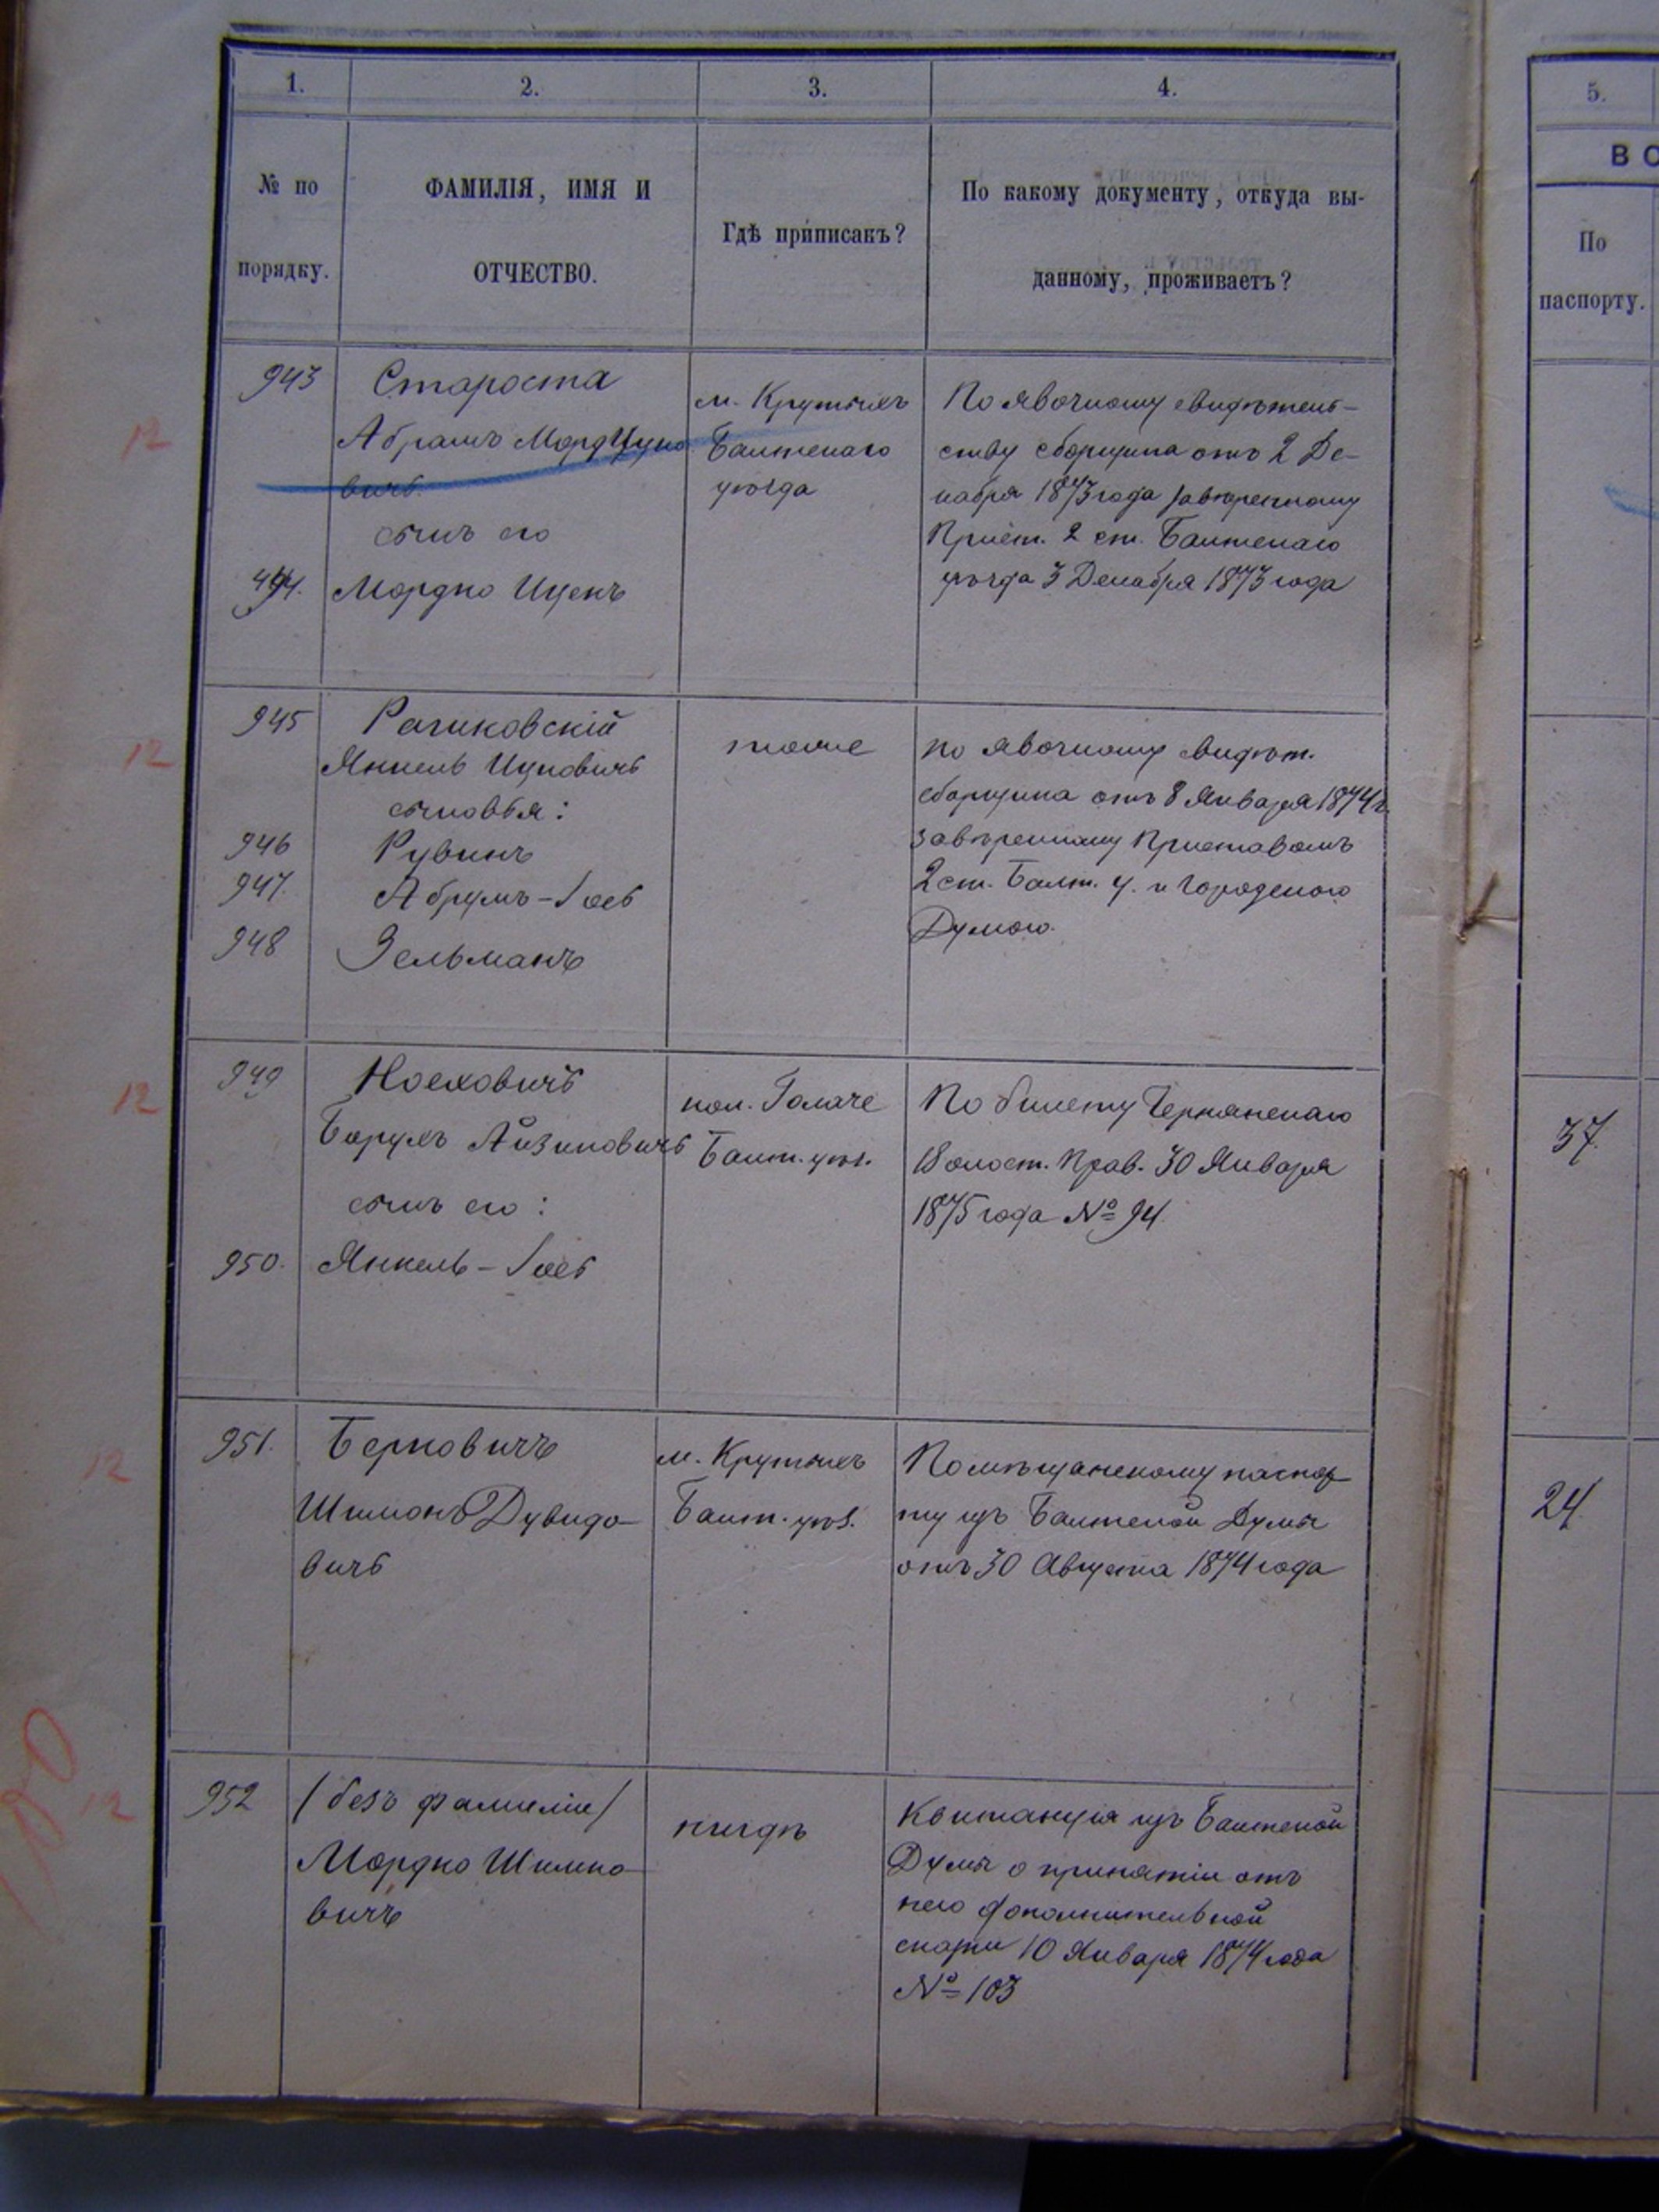 1.
2.
3.
4.
№ по
порядку.
ФАМИЛІЯ, ИМЯ И
ОТЧЕСТВО.
Гдѣ приписанъ?
По какому документу, откуда вы-
данному, проживаетъ?
943
Староста
Абрамъ МордЦуко
вичъ
сынъ его
944.
Мордко Ицекъ
м. Крутыхъ
Балтскаго
уѣзда
По явочному свидѣтель-
ству сборщика отъ 2 Де-
кабря 1873 года завѣренному
Прист. 2 ст. Балтскаго
уѣзда 3 Декабря 1873 года
945
Рачиковскій
Янкель Ицковичъ
сыновья:
946
Рувинъ
947.
Абрумъ-Іось
948
Зельманъ
тоже
по явочному свидѣт.
сборщика отъ 8 Января 1874 г.
завѣренному Приставомъ
2 ст. Балт. у. и городскою
Думою.
949
Ноеховичъ
Борухъ Айзиковичъ
сынъ его:
950.
Янкель-Іось
Балт. уѣз.
По билету
Волост. Прав. 30 Января
1875 года № 94.
951.
Берковичъ
Шимонъ Дувидо-
вичъ
м. Крутыхъ
Балт. уѣз.
По мѣщанскому паспор-
ту изъ Балтской Думы
отъ 30 Августа 1874 года
952
/безъ фамиліи/
Мордко Шимко-
вичъ
нигдѣ
Квитанція изъ Балтской
Думы о принятіи отъ
него дополнительной
сказки 10 Января 1874 года
№ 103
12
12
12
12
12
5.
ВО
По
паспорту.
37.
24.